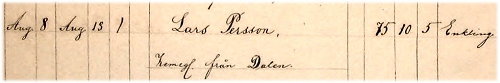 Aug. 8 Aug. 13 1 Lars Persson, 75 10 5 Enkling
Hemegl. från Dalen.